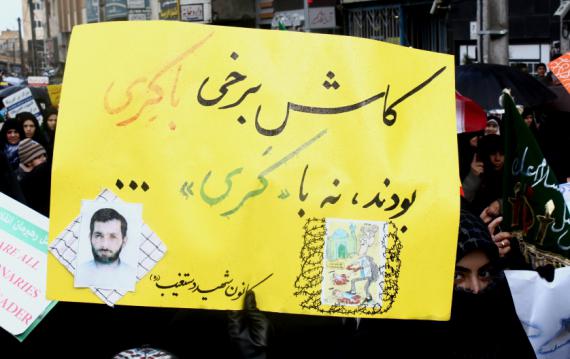 کاش برخی باکِری
بودند، نه با «کَری» ...
کانون شهید دستغیب (ره)
ARE ALL
ONARIES
EADER